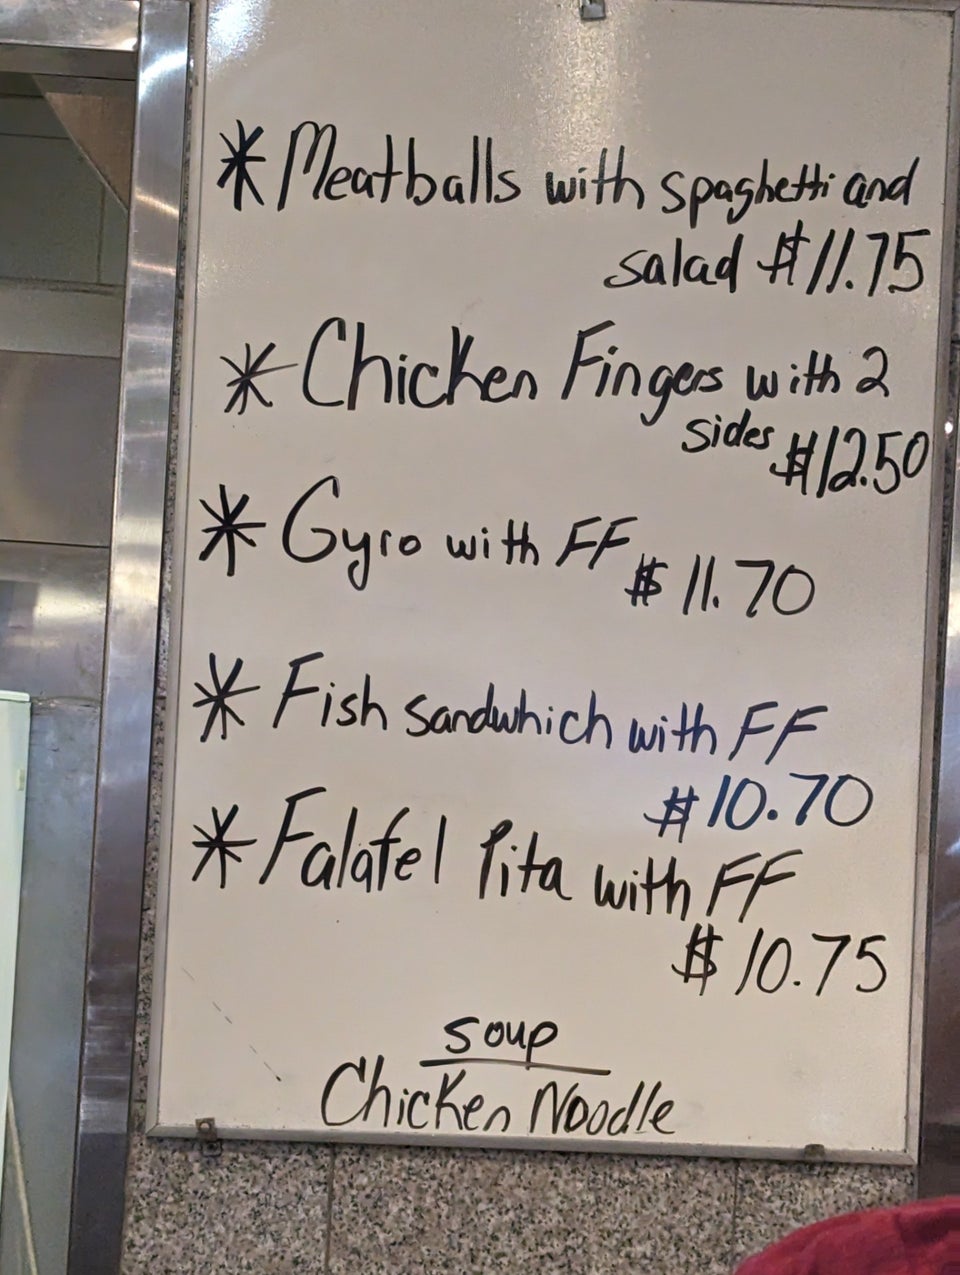 * Meatballs with spaghetti and
salad $11.75
* Chicken Fingers with 2
sides $12.50
* Gyro with FF
$11.70
* Fish sandwhich with FF
$10.70
* Falafel Pita with FF
$10.75
soup
Chicken Noodle